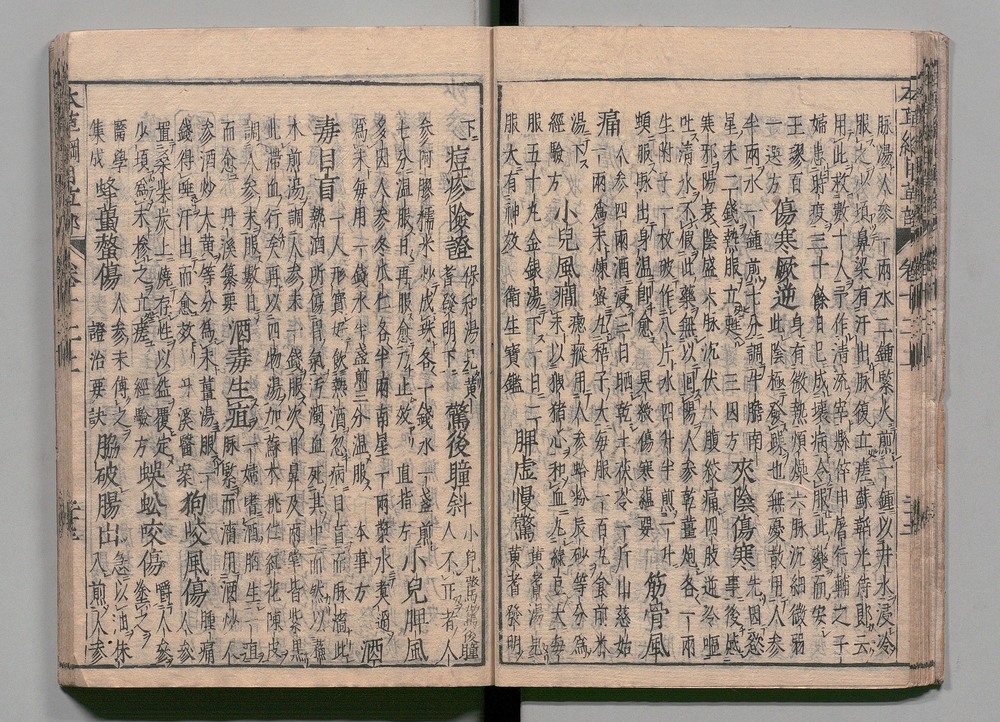 脉湯人參一兩水二鍾緊火煎一鍾以井水浸冷
服之少頃鼻梁有汗出脉復立瘥蘇韜光侍郎云
用此救數十人予作清流宰縣倅申屠行輔之子
婦患時疫三十餘日已成壞病令服此藥而安
王璆百一選方 傷寒厥逆 身有微熱煩燥六脉沉細微弱
此陰極發躁也無憂散用人參
半兩水一鍾煎七分調牛膽南
星末二錢熱服立甦三因方 夾陰傷寒 先因慾
事後感
寒邪陽衰陰盛六脉沉伏小腹絞痛四肢逆冷嘔
吐清水不假此藥無以回陽人參乾薑炮各一兩
生附子一枚破作八片水四升半煎一升
頓服脉出身温即愈 吳綬傷寒蘊要 筋骨風
痛 人參四兩酒浸三日晒乾土伏苓一斤山慈姑
一兩爲末煉蜜丸梧子大每服一百丸食前米
湯下
經驗方 小兒風癇 瘛瘲用人參蛤粉辰砂等分爲
末以猳猪心和血丸菉豆大每
服五十丸金銀湯下一日二
服大有神效 衛生寶鑑 脾虛慢驚 黄耆湯見
黄耆發明
下 痘疹險證 保和湯見黄
耆發明下 驚後瞳斜 小兒驚後瞳
人不正者人
參阿膠糯米炒成珠各一錢水一盞煎
七分温服日再服愈乃止效 直指方 小兒脾風
多困 人參冬瓜仁各半兩南星一兩漿水煮過
爲末每用一錢水半盞煎二三分温服 本事方 酒
毒目盲 一人形實好飲熱酒忽病目盲而脉濇此
熱酒所傷胃氣汚濁血死其中而然以蘇
木煎湯調人參末一錢服次日鼻及兩掌皆紫黑
此滯血行矣再以四物湯加蘇木桃仁紅花陳皮
調人參末服數日
而愈 丹溪纂要 酒毒生疽 一婦嗜酒胸生一疽
脉緊而濇用酒炒人
參酒炒大黄等分爲末薑湯服一
錢得睡汗出而愈效 丹溪醫案 狗咬風傷 腫痛
人參
置桑柴炭上燒存性以盌覆定
少頃爲末摻之立瘥 經驗方 蜈蚣咬傷 嚼人參
塗之
醫學
集成 蜂蠆螫傷 人參末傅之
證治要訣 脇破腸出 急以油抹
入煎人參